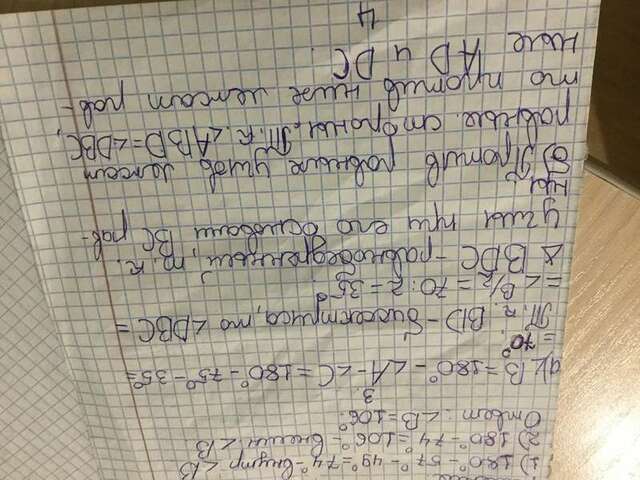 1) 180° - 57° - 49° = 74° - внутр ∠B
2) 180° - 74° = 106° - внешн ∠B
Ответ: ∠B = 106°.
3.
а) ∠B = 180° - ∠A - ∠C = 180° - 75° - 35° =
= 70°.
Т.к. BD - биссектриса, то ∠DBC =
= ∠B/2 = 70 : 2 = 35°
△ BDC - равнобедренный, т.к.
углы при его основании BC рав-
ны
б) Против равных углов лежат
равные стороны. Т.к. ∠ABD = ∠DBC,
то против них лежат рав-
ные AD и DC.
4